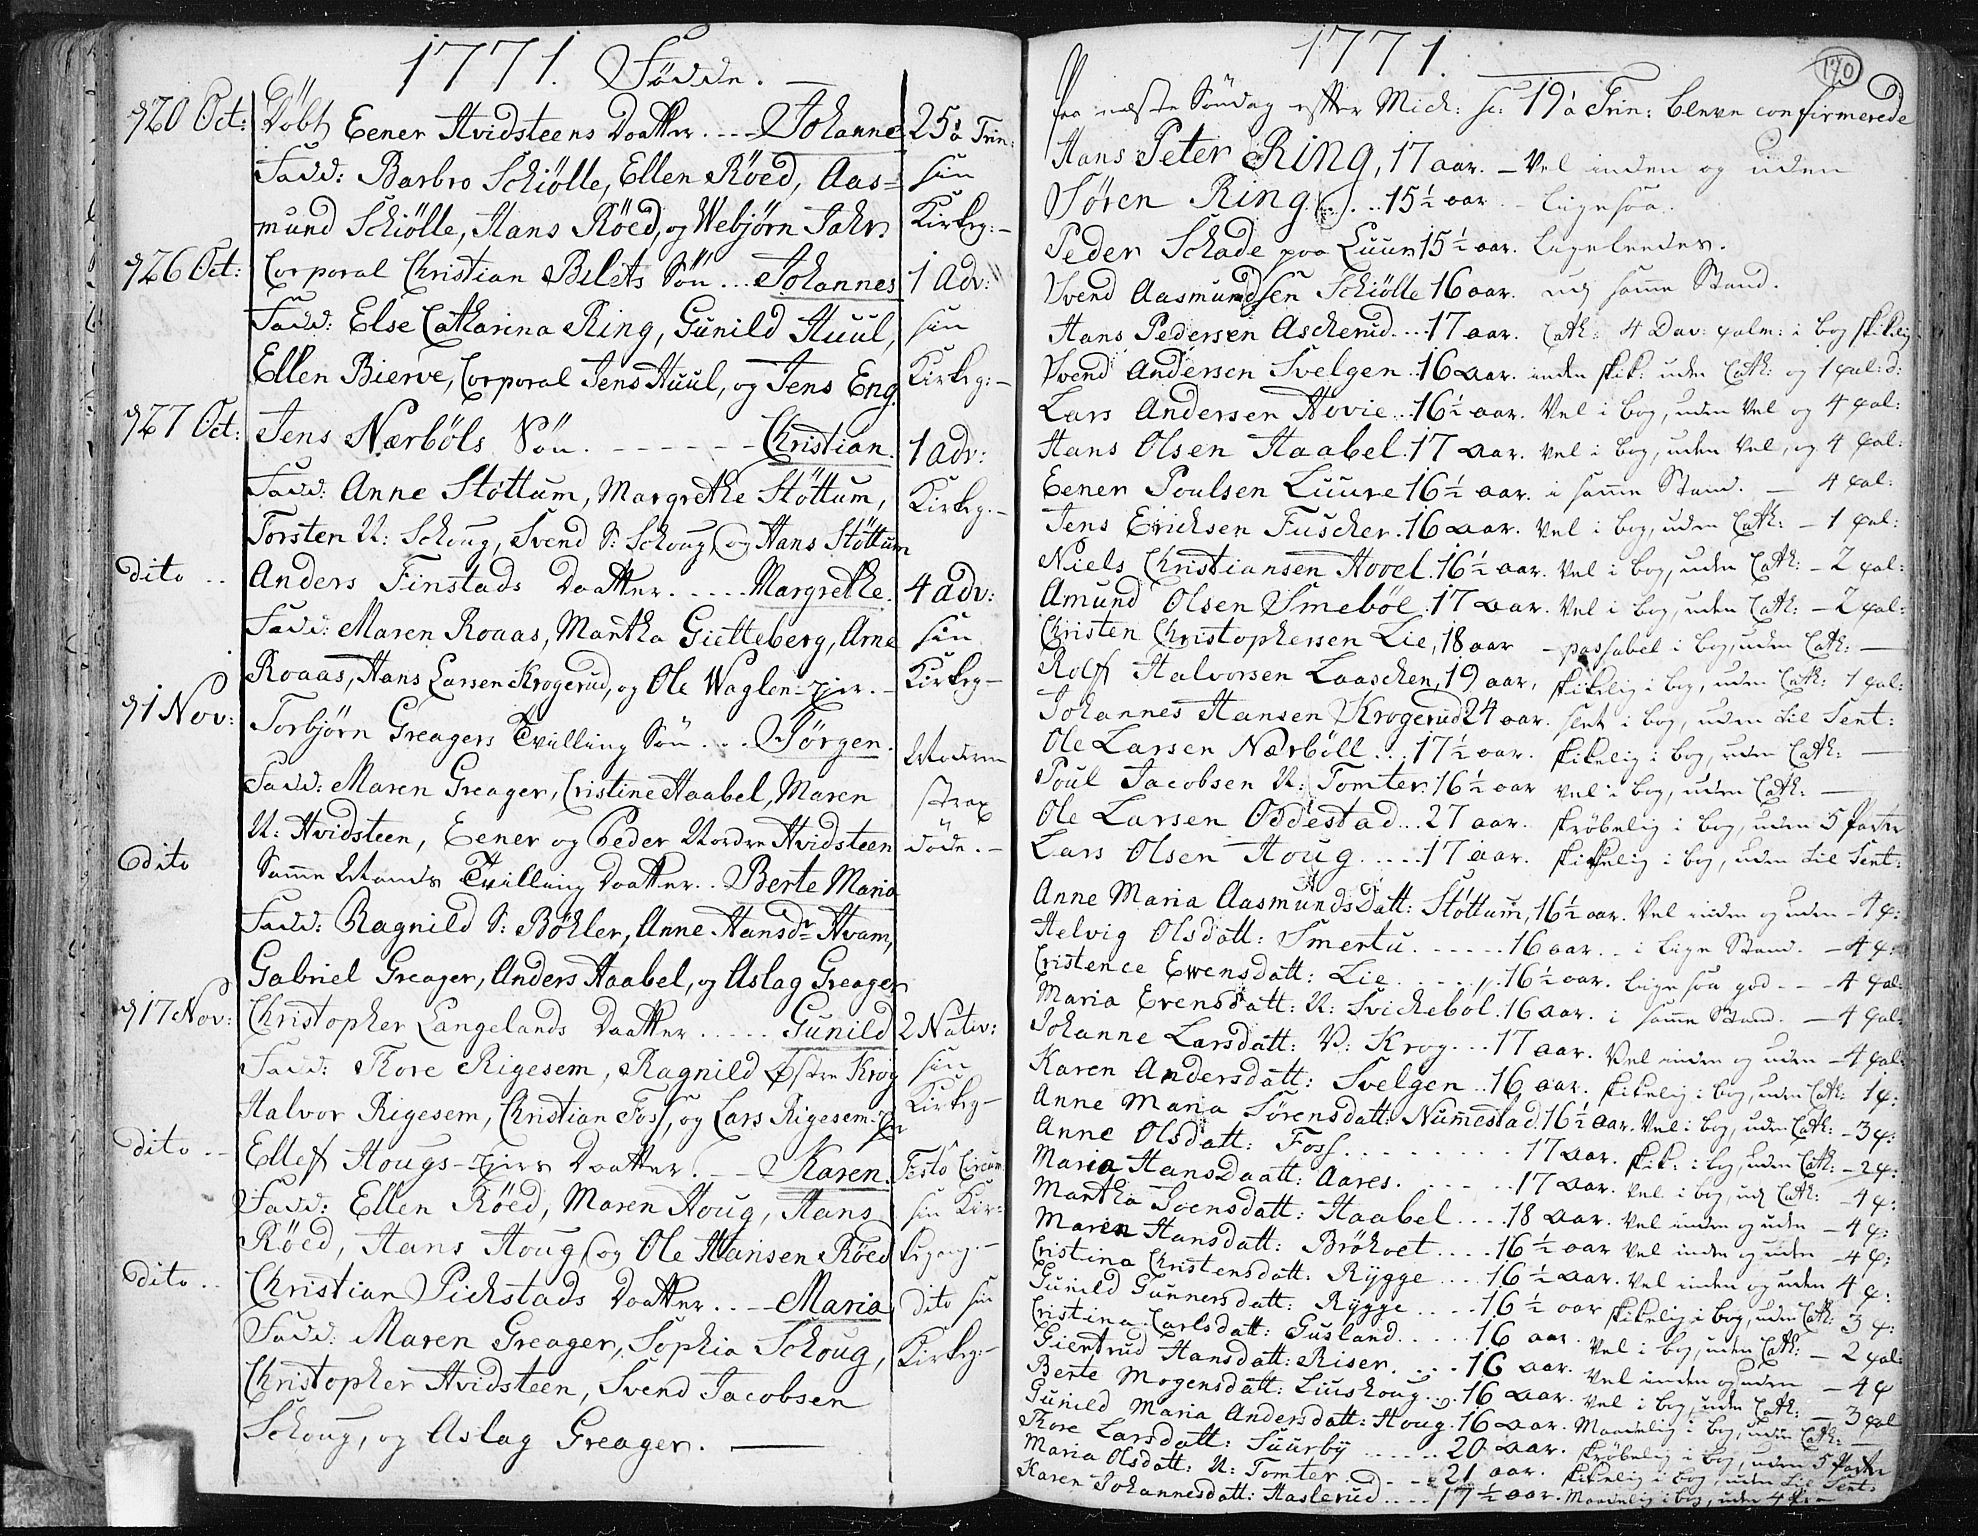 1771. Födde.
d 20 Oct: Döbt Eener Hvidsteens Daatter. --- Johanne 25 à Trin:
Fadd: Barbro Schiölle, Ellen Röed, Aas= sin
mund Schiölle, Hans Röed, og Webjörn Jahr. Kirkeg: -
d 26 Oct: Corporal Christian Belets Sön ... Johannes 1 Adv:
Fadd: Else Catharina Ring, Gunild Huul, sin
Ellen Bierve, Corporal Jens Huul, og Jens Eng. Kirkeg: -
d 27 Oct: Jens Nærböls Sön. - - - - - - Christian. 1 Adv:
Fadd: Anne Stöttum, Margrethe Stöttum, Kirkeg. -
Torsten N: Schoug, Svend S: Schoug, og Hans Stöttum
dito .. Anders Finstads Daatter. .... Margrethe. 4 Adv:
Fadd: Maren Roaas, Martha Gietteberg, Arne sin
Roaas, Hans Larsen Krogerud, og Ole Waglen-Ejer. - Kirkeg -
d 1 Nov: Torbjörn Greagers Tvilling Sön ... Jörgen. Moderen
Fadd: Maren Greager, Cristine Haabel, Maren strax
N: Hvidsteen, Eener og Peder Nordre Hvidsteen döde. -
dito Samme Mands Tvilling Daatter.. Berte Maria
Fadd: Ragnild S: Böhler, Anne Hansdr Hvam,
Gabriel Greager, Anders Haabel, og Aslag Greager
d 17 Nov: Christopher Langelands Daatter ..... Gunild 2 Nativ:
Fadd: Thore Rigesem, Ragnild Östre Krog sin
Halvor Rigesem, Christian Foss, og Lars Rigesem- Kirkeg -
dito -- Ellef Hougs-Ejers Daatter. -- Karen. Festo Circum:
Fadd: Ellen Röed, Maren Houg, Hans sin Kir=
Röed, Hans Houg, og Ole Hansen Röed kegang. -
dito .. Christian Pichstads Daatter. .. - Maria dito sin
Fadd: Maren Greager, Sophia Schoug, Kirkeg: -
Christopher Hvidsteen, Svend Jacobsen
Schoug, og Aslag Greager.
1771.
170
Paa næste Söndag efter Mich: sc: 19 à Trin: bleve confirmerede
Hans Peter Ring, 17 aar. - Vel inden og uden
Sören Ring ... 15 ½ aar. - Ligesaa.
Peder Schade paa Luur 15 ½ aar. Ligeleedes.
Svend Aasmundsen Schiölle 16 aar. udj samme Stand.
Hans Pedersen Ascherud ... 17 aar. Cath: 4 Dav: psalm: i bog skikelig
Svend Andersen Svelgen. 16 aar. inden skik: uden Cath: og 1 psal: D:
Lars Andersen Hovie ... 16 ½ aar. Vel i bog, uden Vel og 4 psal:
Hans Olsen Haabel. 17 aar. Vel i bog, uden Vel, og 4 psal:
Eener Poulsen Luure 16 ½ aar. i samme Stand. - 4 psal:
Jens Erichsen Fuscher. 16 aar. Vel i bog, uden Cath: - 1 psal:
Niels Christiansen Hovel. 16 ½ aar. Vel i bog, uden Cath: - 2 psal:
Amund Olsen Smeböl. 17 aar. Vel i bog, uden Cath: - 2 psal:
Christen Christophersen Lie, 18 aar - passabel i bog, uden Cath: -
Rolf Halvorsen Laaschen, 19 aar, skikelig i bog, uden Cath: 1 psal:
Johannes Hansen Krogerud 24 aar. slet i bog, uden til Sent:
Ole Larsen Nærböll ... 17 ½ aar. skikelig i bog, uden Cath: -
Poul Jacobsen N: Tomter. 16 ½ aar vel i bog, uden Cath: -
Ole Larsen Oddestad ... 27 aar. skröbelig i bog, uden 5 parter
Lars Olsen Houg ..... 17 aar. skikkelig i bog, uden til Sent:
Anne Maria AasmundsDatt: Stöttum, 16 ½ aar. Vel inden og uden - 4 p:
Helvig Olsdatt: Smertu ..... 16 aar. .. i lige Stand. - 4 p:
Cristence Ewensdatt: Lie ..... 16 ½ aar. lige saa god -- - 4 psal:
Maria Evensdatt: N: Svicheböl. 16 aar. i samme Stand. - 4 psal:
Johanne Larsdatt: V: Krog ... 17 aar. Vel inden og uden - 4 psal:
Karen Andersdatt: Svelgen .. 16 aar. skikelig i bog, uden Cath: 1 p:
Anne Maria Sörensdatt: Nummestad. 16 ½ aar. Vel i bog, uden Cath: - 3 p:
Anne Olsdatt: Foss. ........ 17 aar. skik: i bog, uden Cath: - 2 p:
Maria HansDaatt: Aares. ...... 17 aar. vel i bog, udj Cath: - 4 p:
Martha Svensdatt: Haabel .... 18 aar. Vel inden og uden - 4 p:
Maren Hansdatt: Bröhoet .... 16 ½ aar Vel inden og uden - 4 p:
Cristina Christensdatt: Rÿgge ... 16 ½ aar. Vel inden og uden 4 p:
Gunild Gunnersdatt: Rÿgge .... 16 ½ aar skikelig i bog, uden Cath: 3 p:
Cristina Carlsdatt: Gusland ..... 16 aar. Vel i bog, uden Cath: - 2 psal:
Giertrud Hansdatt: Riser. ... 16 aar. Vel inden og uden - 4 p
Berte Mogensdatt: Liushoug ... 16 aar. Vel i bog, uden Cath: - 3 psal
Gunild Maria Andersdatt: Houg. 16 aar. Maadelig i bog, uden Cath: -
Thore Larsdatt: Suurbÿ ..... 20 aar. skröbelig i bog, uden 5 parter
Maria Olsdatt: N: Tomter ..... 21 aar. skikelig i bog, uden til Sent:
Karen Johannesdatt: Haslerud .... 17 ½ aar. Maadelig i bog, uden 4